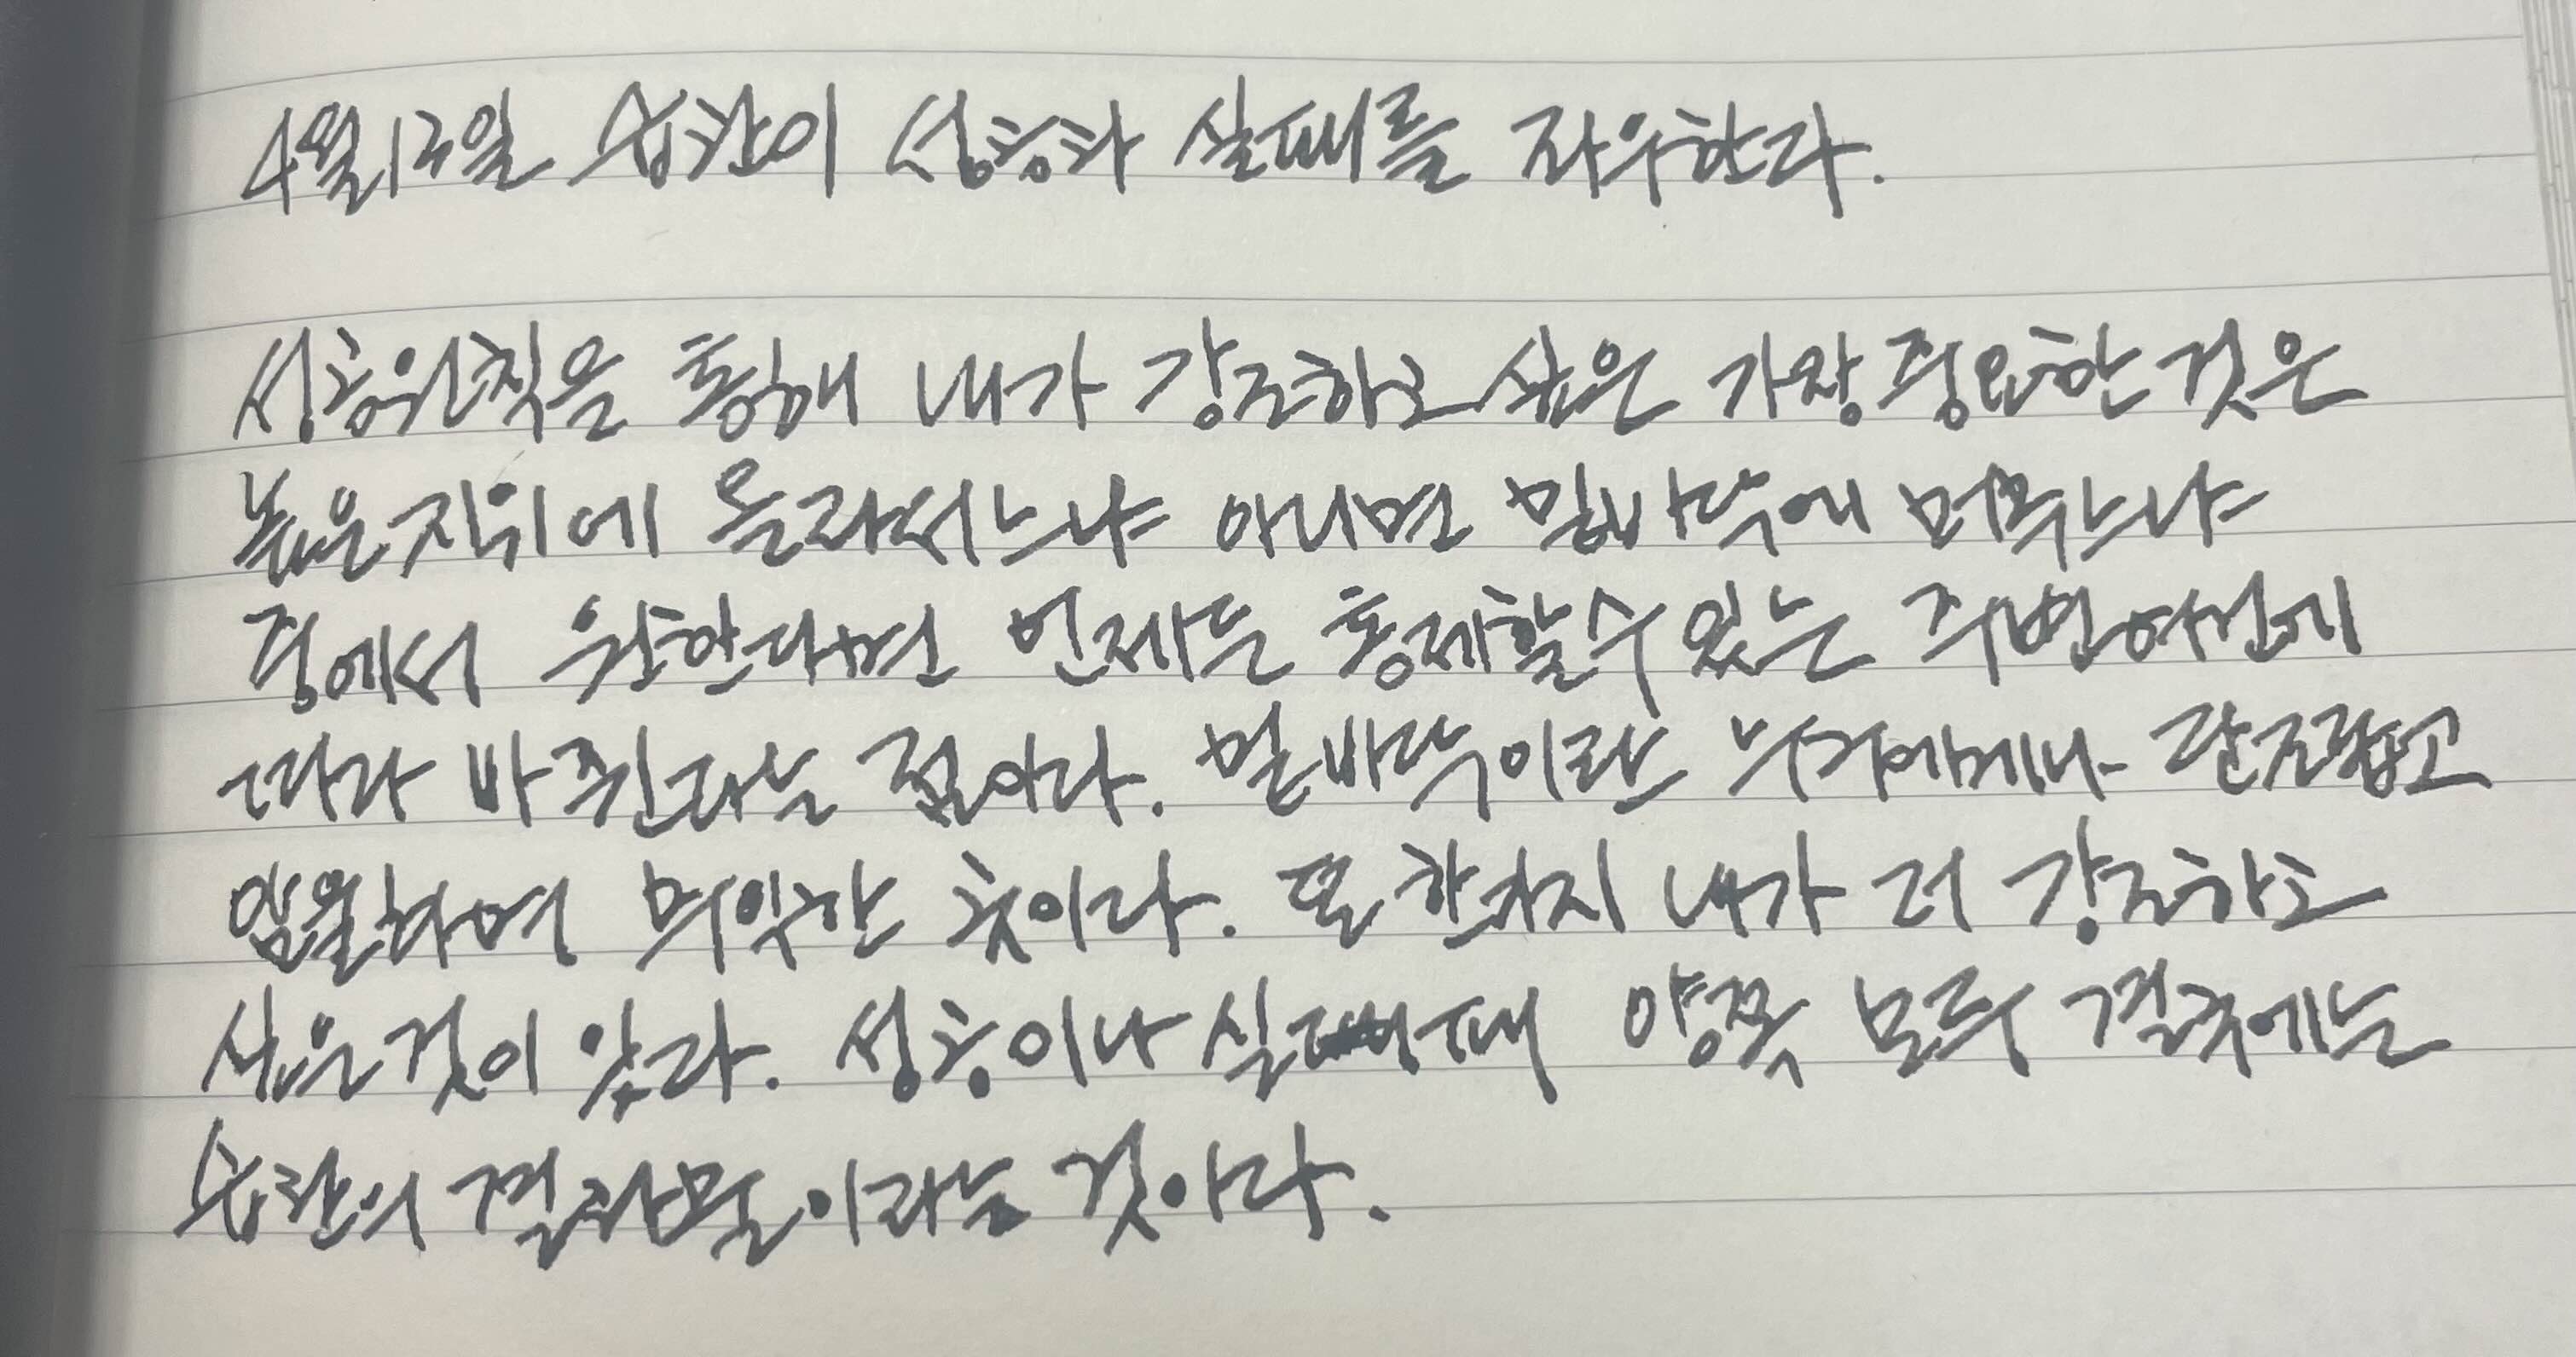 4월13일 습관이 성공과 실패를 좌우한다.
성공원칙을 통해 내가 강조하고 싶은 가장 중요한 것은
높은 지위에 올라서느냐 아니면 밑바닥에 머무느냐
중에서 원한다면 언제든 통제할 수 있는 주변여건에
따라 바뀐다는 점이다. 밑바닥이란 누구에게나 단조롭고
암울하며 열악한 곳이다. 또 한가지 내가 더 강조하고
싶은 것이 있다. 성공이나 실패 양쪽 모두 결국에는
습관의 결과물이라는 것이다.